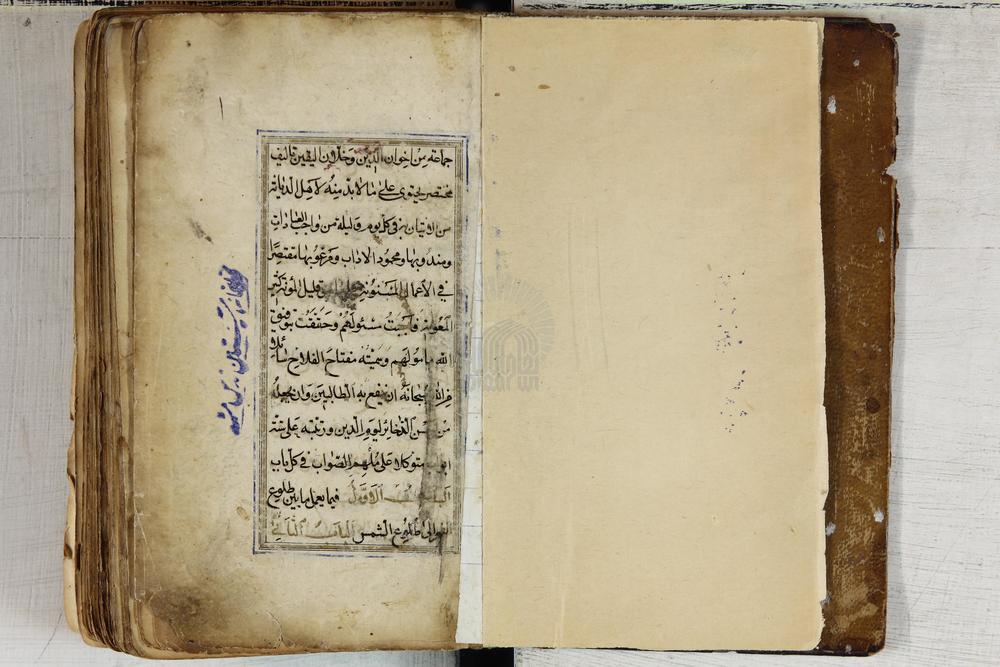 جماعة من اخوان الدين وخلان اليقين تاليف
مختصر يحتوى على ما لا بد منه لاهل الديانة
من الاتيان به فى كل يوم وليلة من واجب العبادات
ومندوبها ومحمود الاداب ومرغوبها مقتصرا
فى الاعمال المسنونة على قليل المؤنة كثير
المعونة فاجبت مسئولهم وحققت بتوفيق
الله مامولهم وسميته مفتاح الفلاح سائلا
من الله سبحانه ان ينفع به الطالبين وان يجعله
من احسن الذخائر ليوم الدين ورتبته على ستة
ابواب متوكلا على ملهم الصواب فى كل باب
الباب الاول فيما يعمل ما بين طلوع
الفجر الى طلوع الشمس الباب الثانى